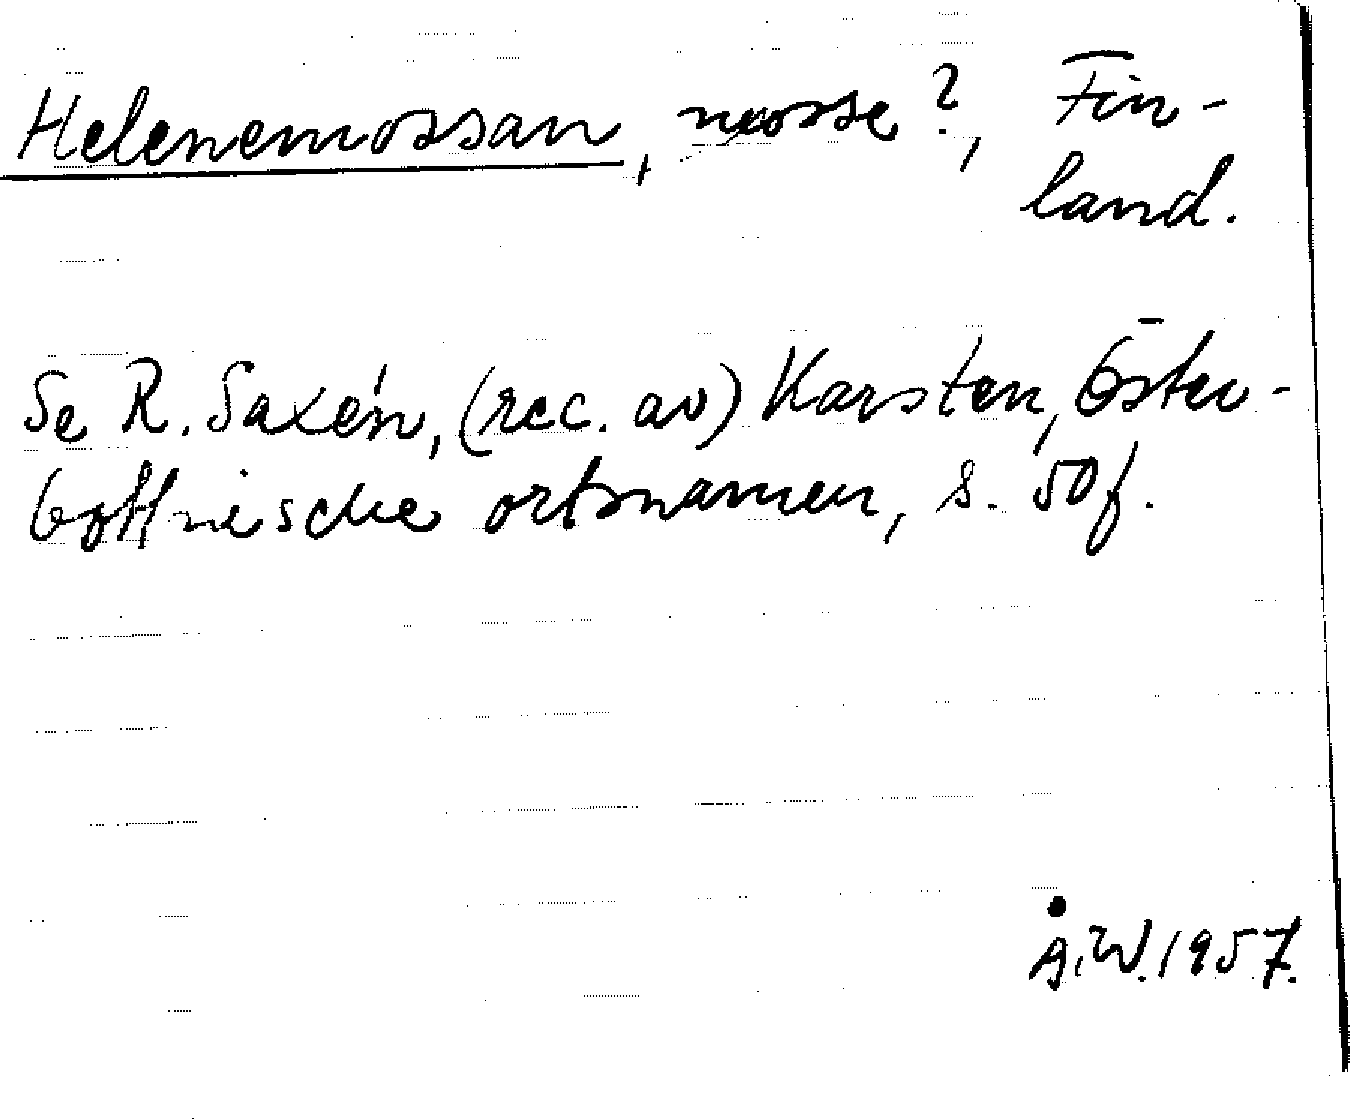 Helenemossan, mosse?, Fin-
land.
Se R. Saxén, (rec. av) Karsten, Öster-
bottnische ortsnamen, s. 50f.
Å.W. 1957.